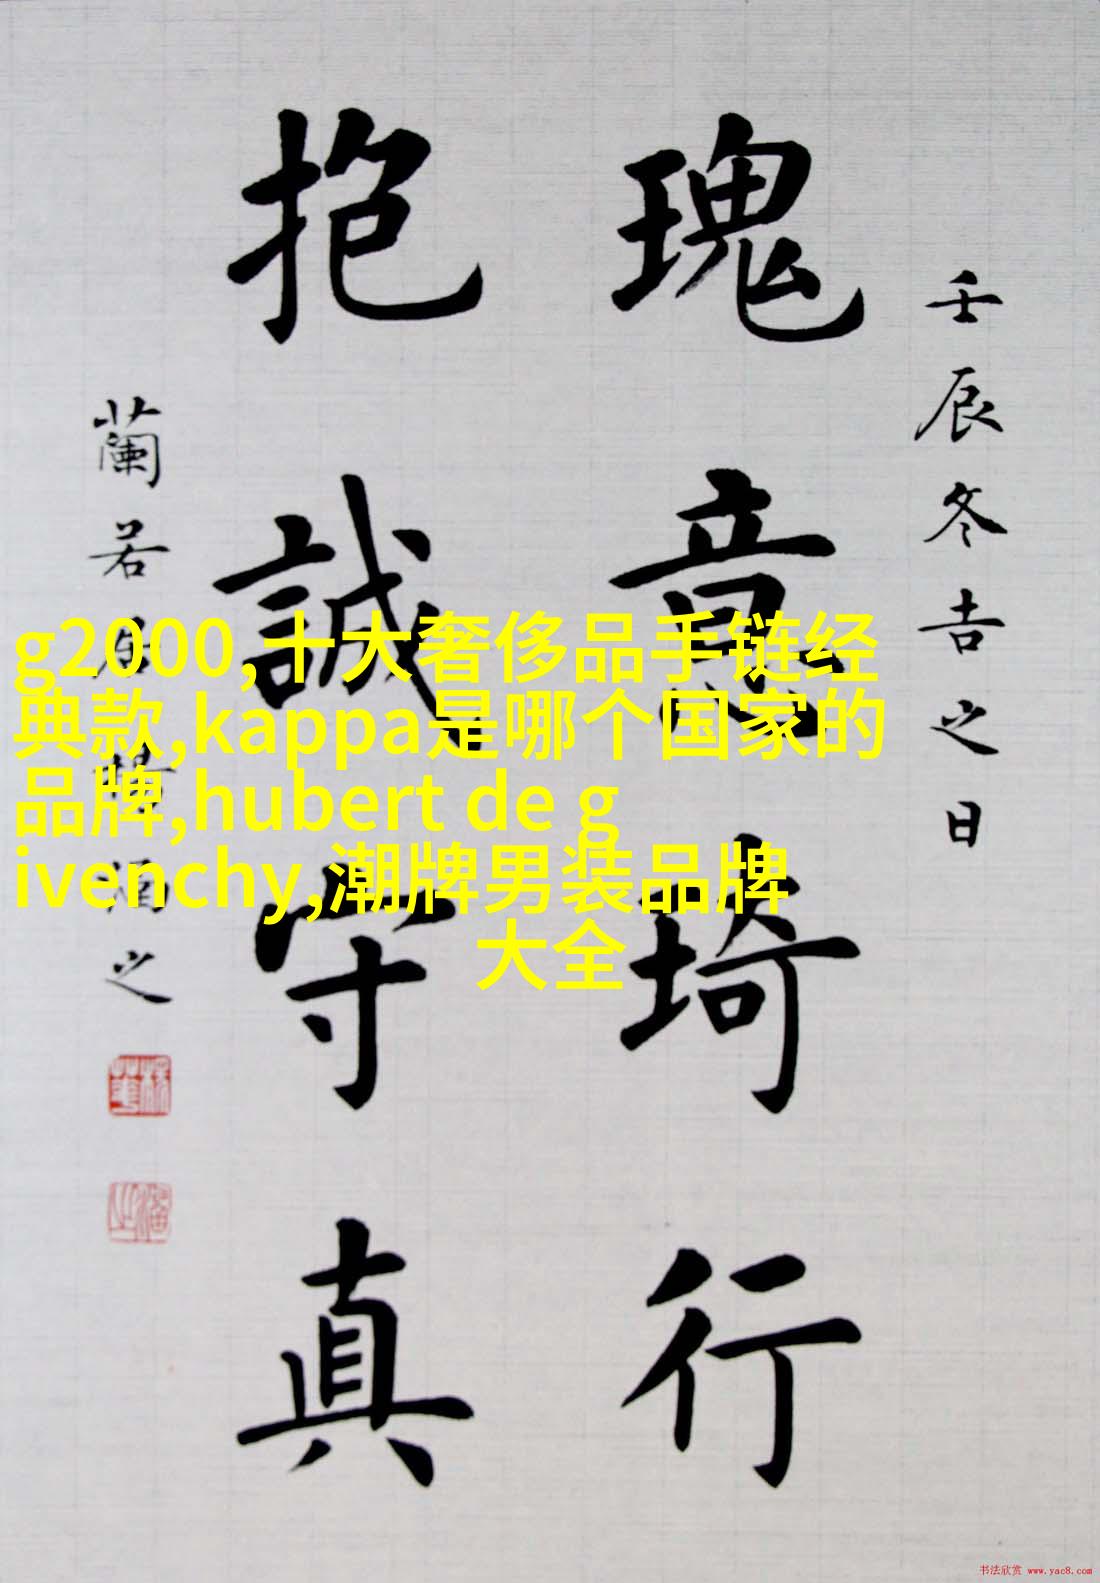 壬辰冬吉之日
瑰意琦行
抱誠守真
蘭若居楊涵之
g2000,十大奢侈品手链经
典款,kappa是哪个国家的
品牌,hubert de g
ivenchy,潮牌男装品牌
大全
书法欣赏 www.yac8.com